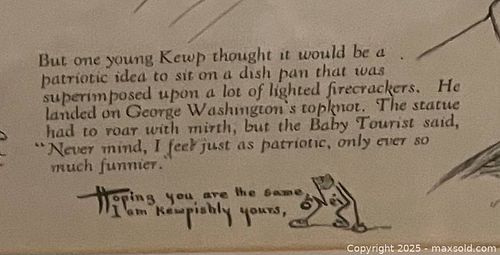 But one young Kewp thought it would be a
patriotic idea to sit on a dish pan that was
superimposed upon a lot of lighted firecrackers. He
landed on George Washington's topknot. The statue
had to roar with mirth, but the Baby Tourist said,
"Never mind, I feel just as patriotic, only ever so
much funnier."
Hoping you are the same
I am Kewpishly yours,
Copyright 2025 - maxsold.com